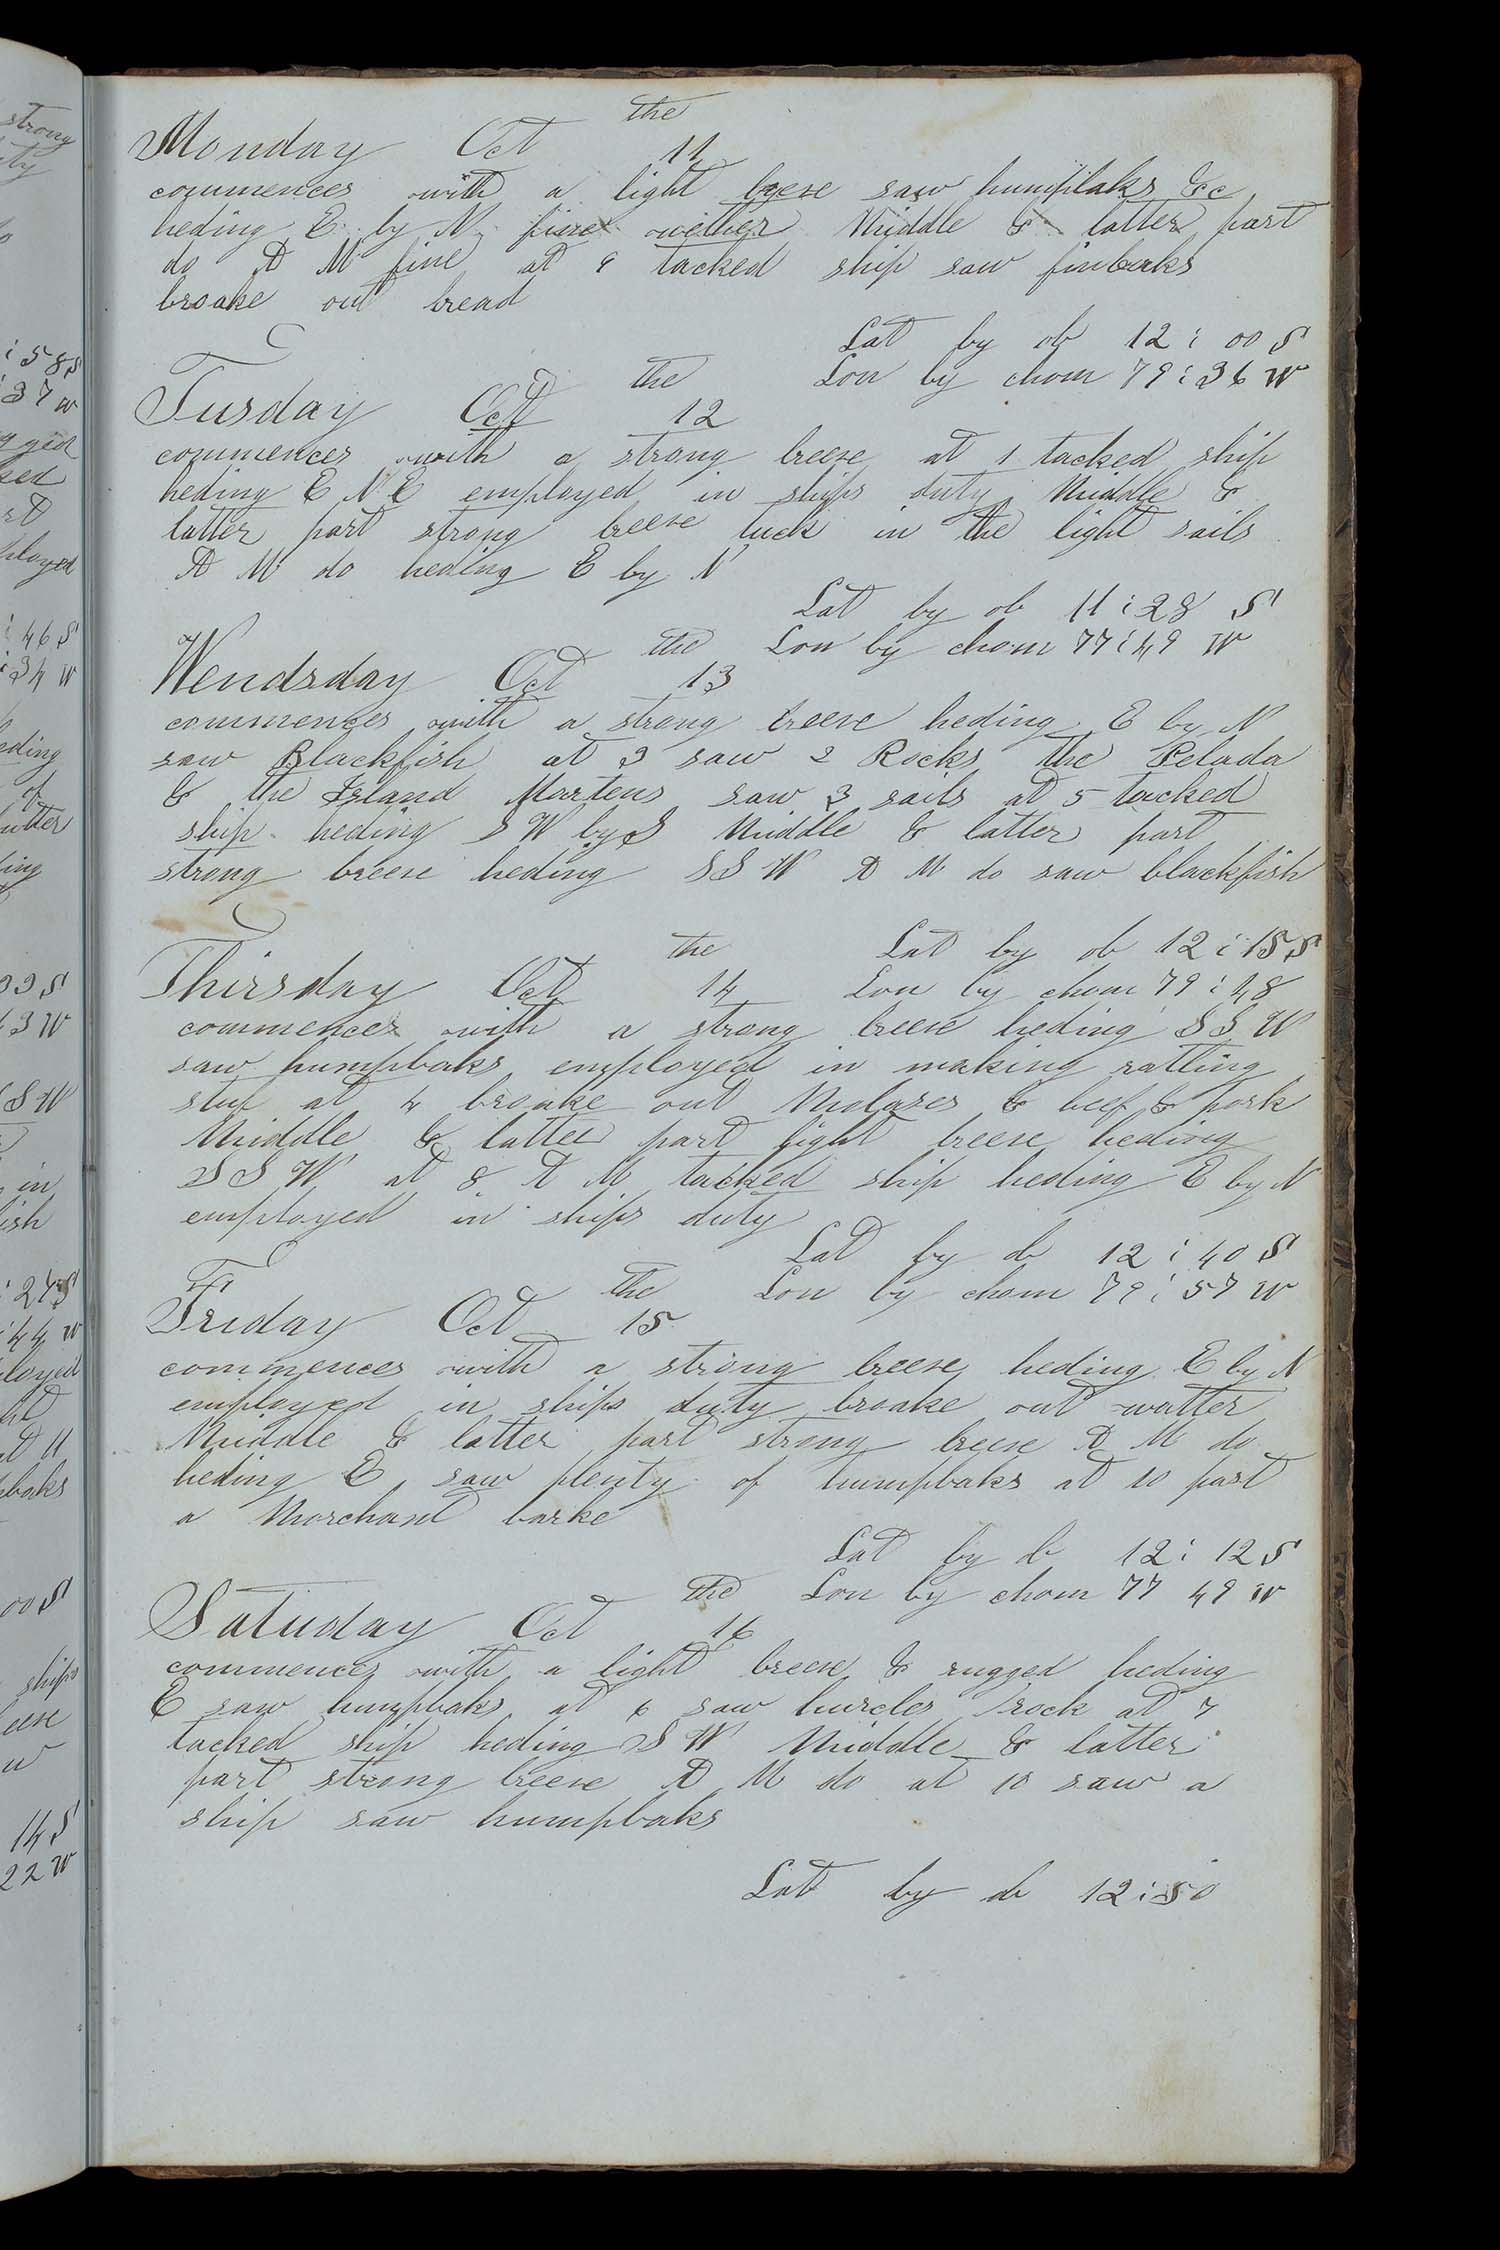 the
Monday Oct 11
commences with a light breese saw humpbaks &cc
heding E by N fine wether Middle & latter part
do A M fine at 9 tacked ship saw finbaks
broake out bread
Lat by ob 12 : 00 S
the Lon by chom 79 : 36 W
Tusday Oct 12
commences with a strong breese at 1 tacked ship
heding E N E employed in ships duty Middle &
latter part strong breese tuck in the light sails
A M do heding E by N
Lat by ob 11 : 28 S
the Lon by chom 77 : 49 W
Wendsday Oct 13
commences with a strong breese heding E by N
saw Blackfish at 3 saw 2 Rocks the Pelada
& the Island Martens saw 3 sails at 5 tacked
ship heding S W by S Middle & latter part
strong breese heding S S W A M do saw blackfish
the Lat by ob 12 : 15 S
Thirsday Oct 14 Lon by chom 79 : 48
commences with a strong breese heding S S W
saw humpbaks employed in making ratling
stuf at 4 broake out Molases & beef & pork
Middle & latter part light breese heding
S S W at 8 A M tacked ship heding E by N
employed in ships duty
Lat by ob 12 : 40 S
the Lon by chom 79 : 57 W
Friday Oct 15
commences with a strong breese heding E by N
employed in ships duty broake out watter
Middle & latter part strong breese A M do
heding E saw plenty of humpbaks at 10 past
a Morchant barke
Lat by ob 12 : 12 S
the Lon by chom 77 49 W
Satuday Oct 16
commences with a light breese & rugged heding
E saw humpbaks at 6 saw hurcles rock at 7
tacked ship heding S W Middle & latter
part strong breese A M do at 10 saw a
ship saw humpbaks
Lat by ob 12 : 50